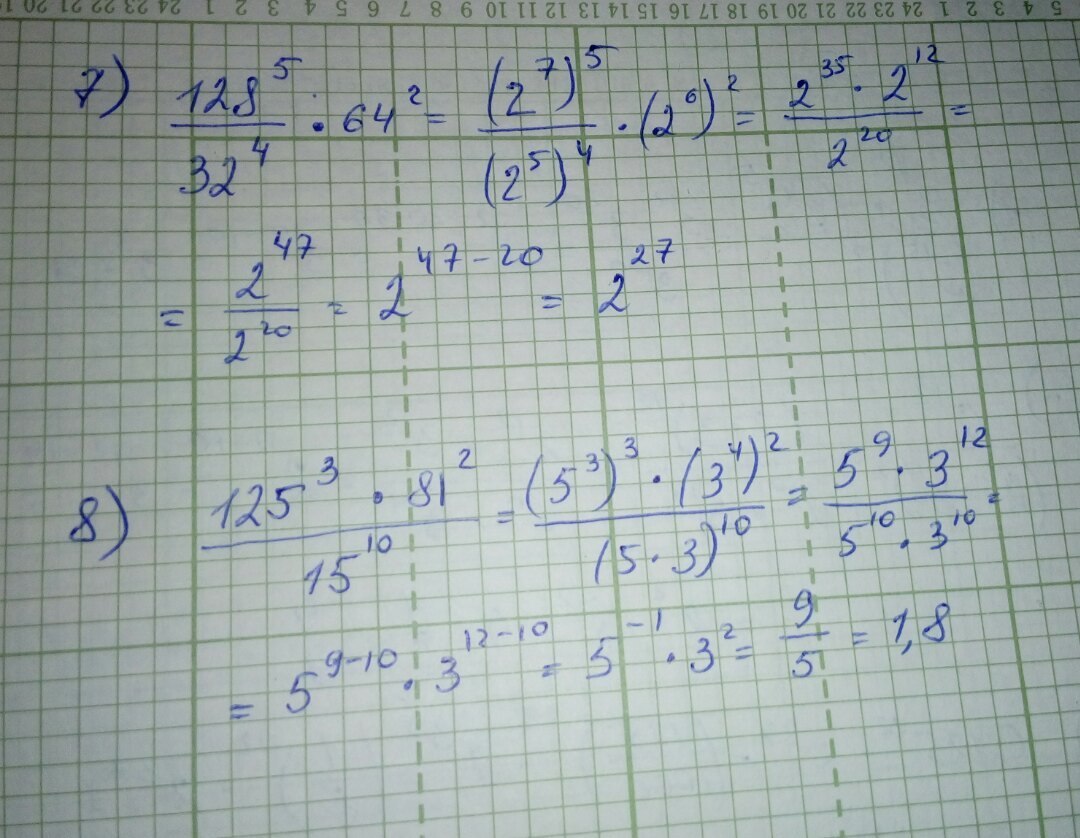 24 1 2 3 4 5 6 7 8 9 10 11 12 13 14 15 16 17 18 19 20 21 22 23 24 1 2 3 4 5
20 21 22 23 24
7) 128^5/32^4 · 64^2 = (2^7)^5/(2^5)^4 · (2^6)^2 = 2^35 · 2^12/2^20 =
= 2^47/2^20 = 2^47-20 = 2^27
8) 125^3 · 81^2/15^10 = (5^3)^3 · (3^4)^2/(5·3)^10 = 5^9 · 3^12/5^10 · 3^10 =
= 5^9-10 · 3^12-10 = 5^-1 · 3^2 = 9/5 = 1,8